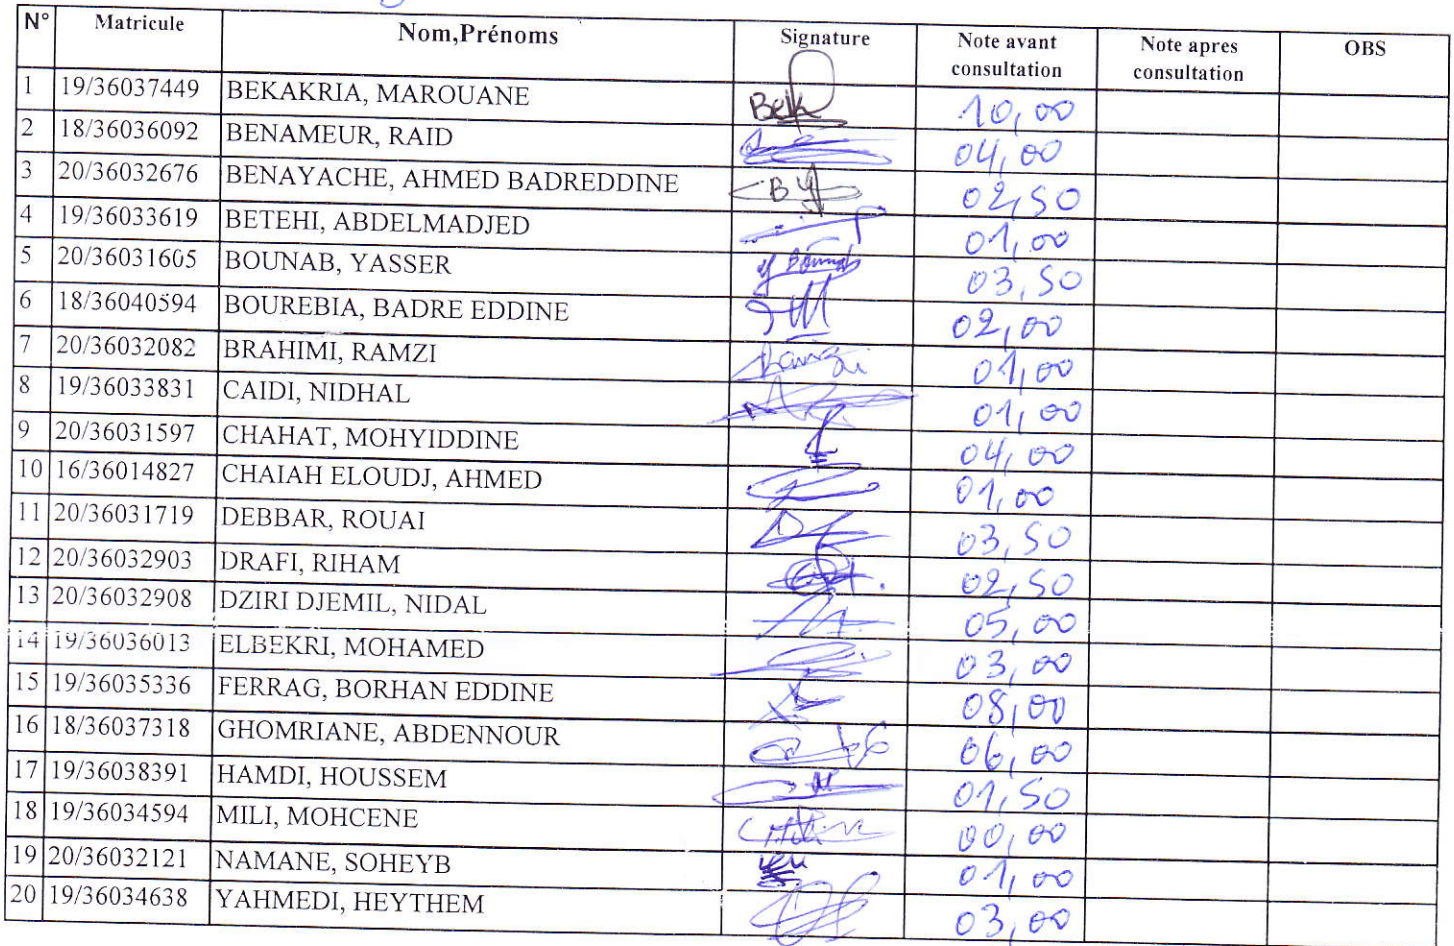 N° Matricule Nom,Prénoms Signature Note avant consultation Note apres consultation OBS
1 19/36037449 BEKAKRIA, MAROUANE Bek 10,00
2 18/36036092 BENAMEUR, RAID 04,00
3 20/36032676 BENAYACHE, AHMED BADREDDINE BY 02,50
4 19/36033619 BETEHI, ABDELMADJED 01,00
5 20/36031605 BOUNAB, YASSER y Bounab 03,50
6 18/36040594 BOUREBIA, BADRE EDDINE 02,00
7 20/36032082 BRAHIMI, RAMZI Ramzi 01,00
8 19/36033831 CAIDI, NIDHAL 01,00
9 20/36031597 CHAHAT, MOHYIDDINE 04,00
10 16/36014827 CHAIAH ELOUDJ, AHMED 01,00
11 20/36031719 DEBBAR, ROUAI 03,50
12 20/36032903 DRAFI, RIHAM 02,50
13 20/36032908 DZIRI DJEMIL, NIDAL 05,00
14 19/36036013 ELBEKRI, MOHAMED 03,00
15 19/36035336 FERRAG, BORHAN EDDINE 08,00
16 18/36037318 GHOMRIANE, ABDENNOUR 06,00
17 19/36038391 HAMDI, HOUSSEM 01,50
18 19/36034594 MILI, MOHCENE 00,00
19 20/36032121 NAMANE, SOHEYB 01,00
20 19/36034638 YAHMEDI, HEYTHEM 03,00